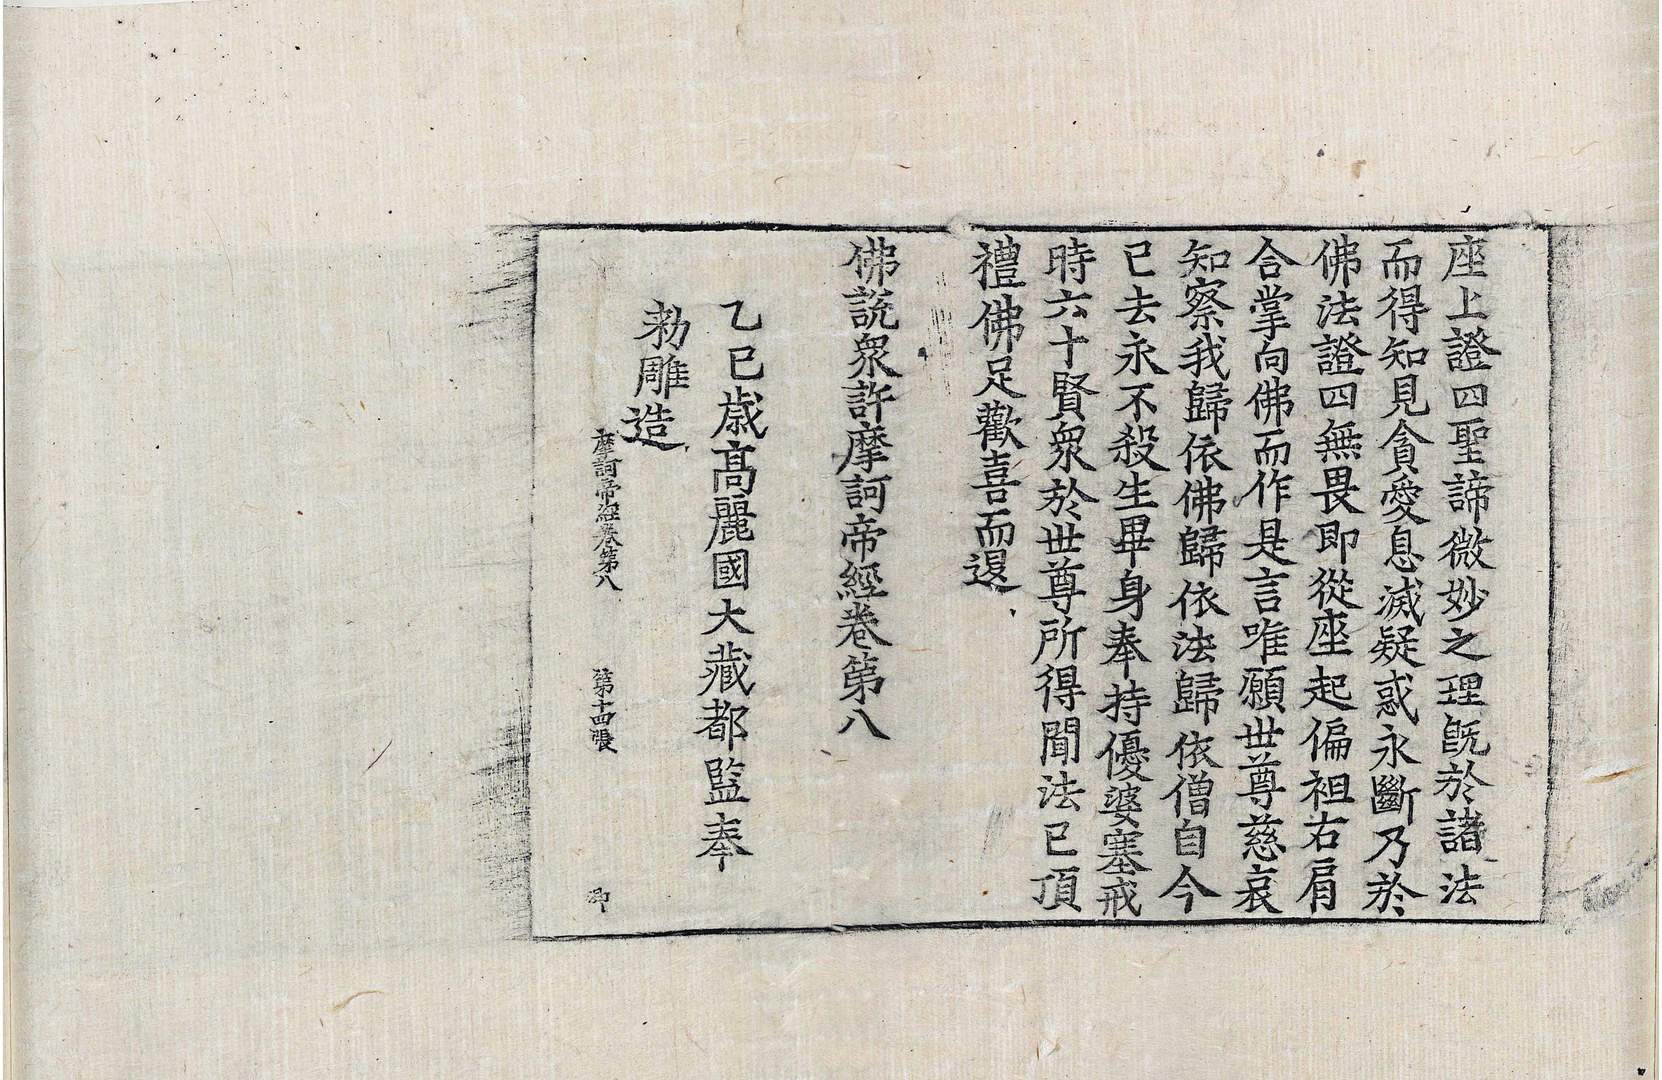 座上證四聖諦微妙之理旣於諸法
而得知見貪愛息滅疑惑永斷乃於
佛法證四無畏即從座起偏袒右肩
合掌向佛而作是言唯願世尊慈哀
知察我歸依佛歸依法歸依僧自今
已去永不殺生畢身奉持優婆塞戒
時六十賢衆於世尊所得聞法已頂
禮佛足歡喜而退
佛說衆許摩訶帝經卷第八
乙巳歲高麗國大藏都監奉
勑雕造
摩訶帝經卷第八 第十四張 卿